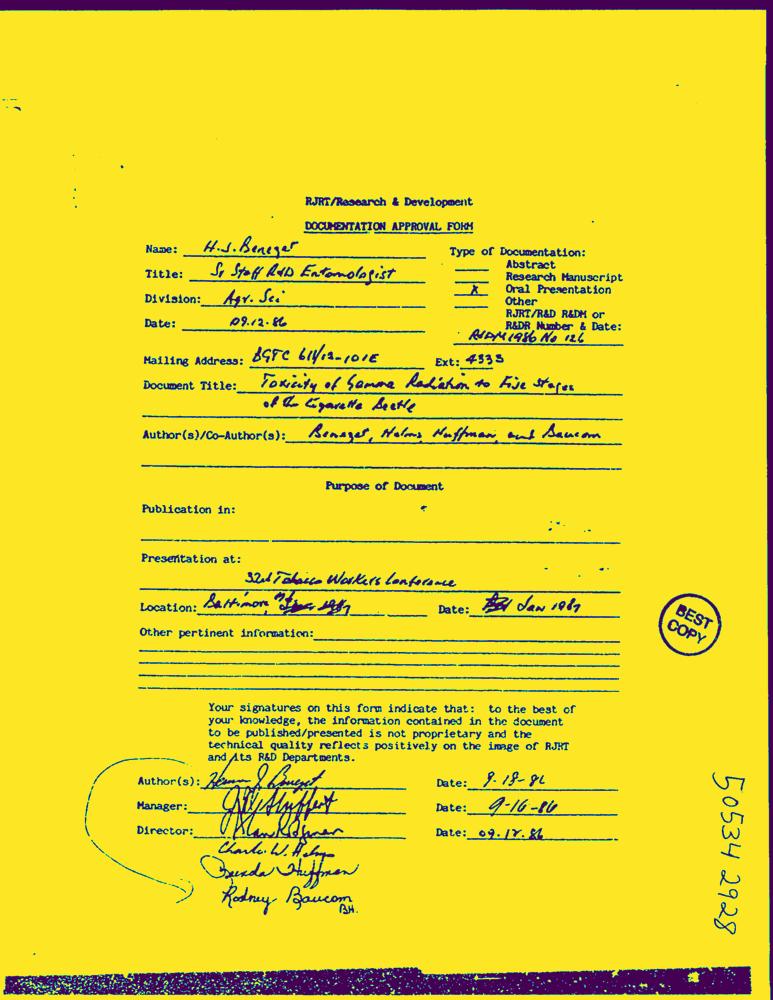 RJRT/Research & Development
DOCUMENTATION APPROVAL FORM
Name: H.J. Benezet
Title: Sr Staff R&D Entomologist
Division: Agr. Sci
Date: 09.12.86
Type of Documentation:
Abstract
Research Manuscript
X Oral Presentation
Other
RJRT/R&D R&DM or
R&DR Number & Date:
R&DM 1986 No 126
Mailing Address: BGTC 611/12-101E Ext: 4535
Document Title: Toxicity of Gamma Radiation to Five Stages
of the Cigarette Beetle
Author(s)/Co-Author(s): Benezet, Helms, Huffman, and Baucom
Purpose of Document
Publication in:
Presentation at:
32nd Tobacco Workers Conference
Location: Baltimore Md Date: Jan 1987
Other pertinent information:
Your signatures on this form indicate that: to the best of
your knowledge, the information contained in the document
to be published/presented is not proprietary and the
technical quality reflects positively on the image of RJRT
and its R&D Departments.
Author(s): Date:
Manager: Date: 9-16-86
Director: Date: 09.17.86
Charles W. Helms
Brenda Huffman
Rodney Baucom
BH.
BEST
COPY
50534 2928